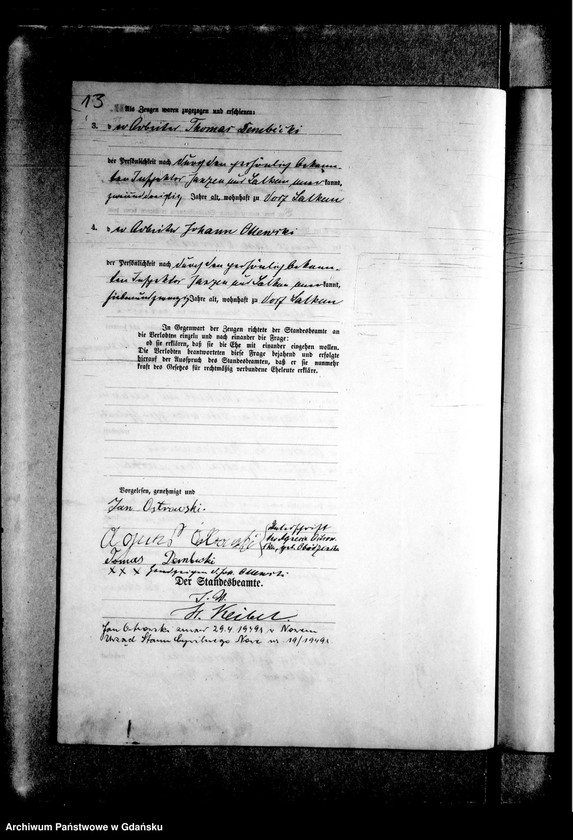 13
Als Zeugen waren zugezogen und erschienen:
3. der Arbeiter Thomas Dembicki
der Persönlichkeit nach durch den persönlich bekann-
ten Inspektor Janzen aus Lalkau anerkannt,
zweiunddreißig Jahre alt, wohnhaft zu Dorf Lalkau
4. der Arbeiter Johann Ollewski
der Persönlichkeit nach durch den persönlich bekann-
ten Inspektor Janzen aus Lalkau anerkannt,
siebenundzwanzig Jahre alt, wohnhaft zu Dorf Lalkau
In Gegenwart der Zeugen richtete der Standesbeamte an
die Verlobten einzeln und nach einander die Frage:
ob sie erklären, daß sie die Ehe mit einander eingehen wollen.
Die Verlobten beantworteten diese Frage bejahend und erfolgte
hierauf der Ausspruch des Standesbeamten, daß er sie nunmehr
kraft des Gesetzes für rechtmäßig verbundene Eheleute erkläre.
Vorgelesen, genehmigt und
Jan Ostrowski.
Agnes
(Unterschrift
der Agnes Ostrow-
ska, geb.
Tomas Dembski
x x x Handzeichen d. Joh. Ollewski
Der Standesbeamte.
J. V.
Keibel.
Jan Ostrowski zmarł 29.4.1949r w Nowem
Urząd Stanu Cywilnego Nowe nr 19/1949r.
Archiwum Państwowe w Gdańsku